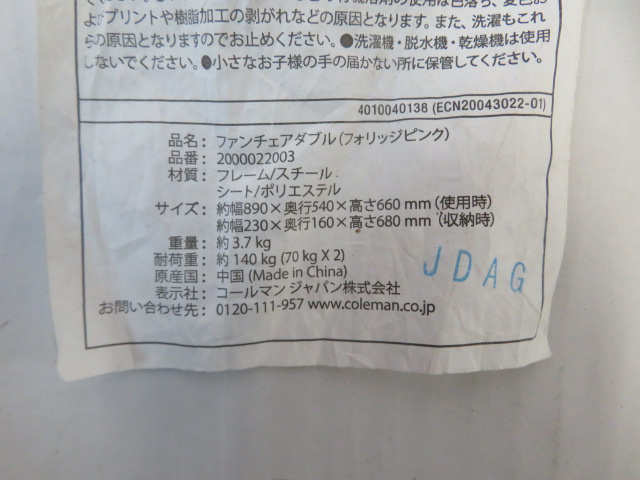 の使用は色落ち、変色お
よびプリントや樹脂加工の剥がれなどの原因となります。また、洗濯もこれ
らの原因となりますのでお止めください。●洗濯機・脱水機・乾燥機は使用
しないでください。●小さなお子様の手の届かない所に保管してください。
4010040138 (ECN20043022-01)
品名： ファンチェアダブル(フォリッジピンク)
品番： 2000022003
材質： フレーム/スチール
シート/ポリエステル
サイズ： 約幅890×奥行540×高さ660 mm (使用時)
約幅230×奥行160×高さ680 mm (収納時)
重量： 約 3.7 kg
耐荷重： 約 140 kg (70 kg X 2)
原産国： 中国 (Made in China)
表示社： コールマン ジャパン株式会社
お問い合わせ先： 0120-111-957 www.coleman.co.jp
JDAG